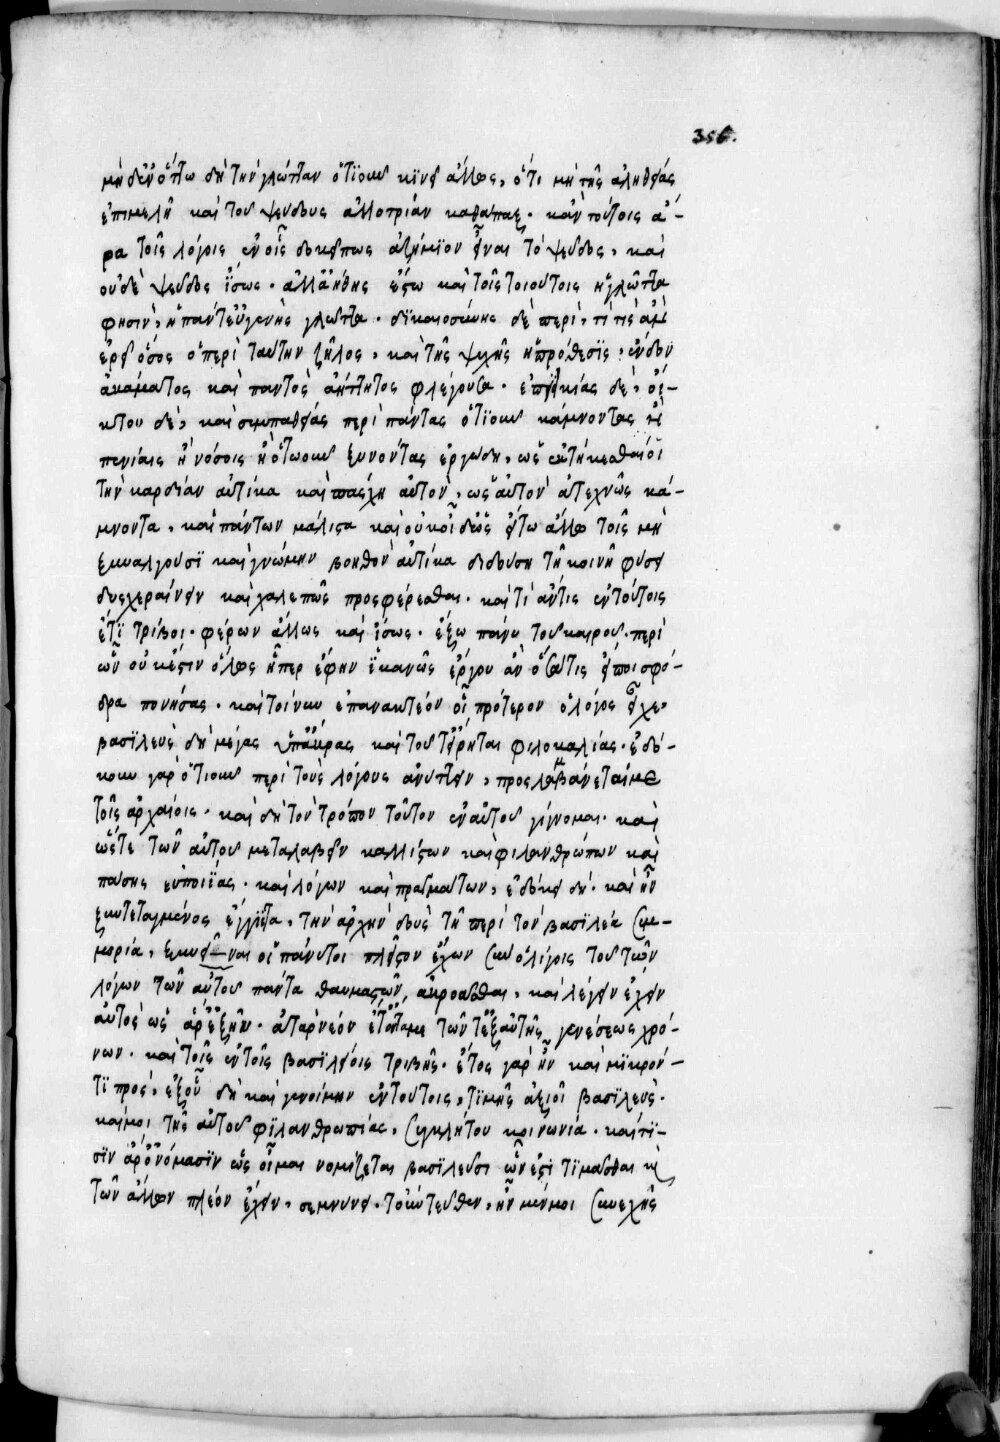 356.
μηδενὸ τῳ δὴ τὴν γλῶτταν ὁτϊοῦν κϊνεῖ ἄλλως, ὅτι μὴ τῆς ἀληθείας
ἐπιμελῆ καὶ τοῦ ψεύδους ἀλλοτρίαν καθάπαξ. κἀν τούτοις ἄ-
ρα τοῖς λόγοις ἐν οἷς δοκεῖ πως ἀζήμϊον εἶναι τὸ ψεῦδος, καὶ
οὐδὲ ψεῦδος ἴσως. ἀλλ' ἀήθης ἔξω καὶ τοῖς τοιούτοις ἡ γλῶττα
φησιν, ἡ πάντ' εὐγενὴς γλῶττα. δϊκαιοσύνης δὲ περὶ, τί τις ἂν
ἐρεῖ ὅσος ὁ περὶ ταύτην ζῆλος, καὶ τῆς ψυχῆς ἡ πρόθεσϊς, ἔνδον
ἀκάματος καὶ παντὸς ἀήττητος φλέγουσα. ἐπϊεικίας δὲ, οἴ-
κτου δὲ, καὶ συμπαθείας περὶ πάντας ὁτϊοῦν κάμνοντας ἢ
πενίαις ἢ νόσοις ἢ ὁτῳοῦν ξυνόντας ἐργώδη, ὡς ἐκτήκεσθαι οἱ
τὴν καρδίαν αὐτίκα καὶ πάσχῃ αὐτὸν, ὡς αὐτὸν ἀτεχνῶς κά-
μνοντα, καὶ πάντων μάλιστα καὶ οὐκ οἶδ' ὡς εἴ τῳ ἄλλῳ τοῖς μὴ
ξυναλγοῦσϊ καὶ γνώμην βοηθὸν αὐτίκα διδοῦσι τῇ κοινῇ φύσει
δυσχεραίνειν καὶ χαλεπῶς προσφέρεσθαι. καὶ τί ἄν τις ἐν τούτοις
ἔτϊ τρίβοι. φέρων ἄλλως καὶ ἴσως. ἔξω πάνυ τοῦ καιροῦ. περὶ
ὧν οὐκ ἔστιν ὅλως ἧπερ ἔφην ἱκανῶς ἔργου ἂν ὅστις εἴποι σφό-
δρα πονήσας. καὶ τοίνυν ἐπανακτέον οἷ πρότερον ὁ λόγος εἶχε.
βασϊλεὺς δὴ μέγας ὑπ' ἄκρας καὶ τοῦτ' εἴρηται φιλοκαλίας. ἐδό-
κουν γὰρ ὁτιοῦν περὶ τοὺς λόγους ἀνύττειν, προσλαμβάνεταί με
τοῖς ἀρχαίοις. καὶ δὴ τὸν τρόπον τοῦτον ἐν αὐτοῦ γίγνομαι. καὶ
ὥστε τῶν αὐτοῦ μεταλαβεῖν καλλίστων καὶ φιλανθρώπων καὶ
πάσης εὐποιΐας. καὶ λόγων καὶ πραγμάτων, ἐδόκει δή. καὶ ἦν
ξυντεταγμένος ἔγγιστα, τὴν ἀρχὴν δοὺς τῇ περὶ τὸν βασιλέα συμ-
μορία, ξυνεῖναι οἱ πάνυ τοι πλεῖστον ἔχων σὺν ὀλίγοις τοῦ τῶν
λόγων τῶν αὐτοῦ πάντα θαυμαστῶν, ἀκροᾶσθαι, καὶ λέγειν ἔχειν
αὐτὸς ὡς ἄρ' ἐξῆν. ἀτὰρ νέον ἔτ' ὄντα με τῶν τ' ἐξ αὐτῆς γενέσεως χρό-
νων. καὶ τοῖς ἐν τοῖς βασϊλείοις τριβῆς. ἔτος γὰρ ἦν καὶ μϊκρόν-
τϊ πρὸς, ἐξ οὗ δὴ καὶ γενοίμην ἐν τούτοις, τϊμῆς ἀξιοῖ βασϊλεὺς.
καί μοι τῆς αὐτοῦ φϊλανθρωπίας, συγκλήτου κοινωνία. καί τϊ-
σϊν ἄρ' ὀνόμασϊν ὡς οἶμαι νομίζεται βασϊλεῦσι ὧν ἐστὶ τϊμᾶσθαι κ̀
τῶν ἄλλων πλέον ἔχειν, σεμνύνει. τοὐντεῦθεν, ἦν μέν μοι συνεχὴς